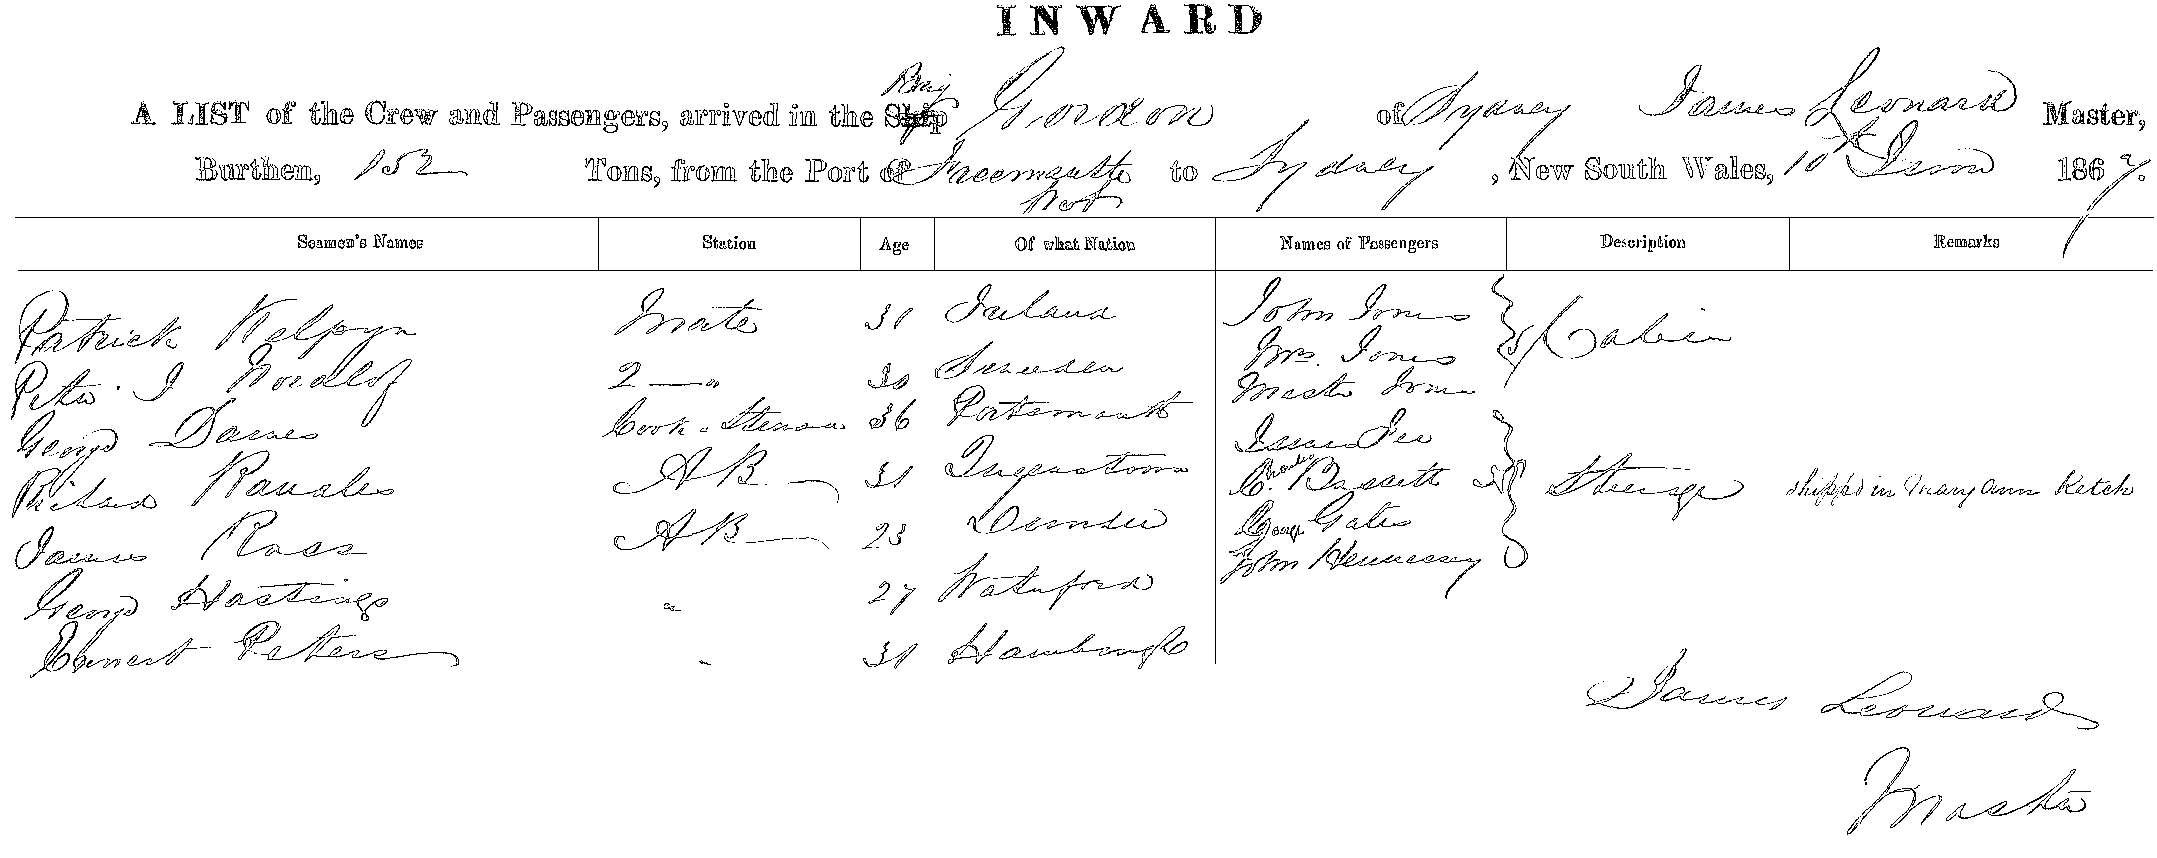 INWARD
Brig
A LIST of the Crew and Passengers, arrived in the Ship Gordon of Sydney James Leonard Master,
Burthen, 152 Tons, from the Port of Freemantle to Sydney, New South Wales, 10th 1867.
Seamen's Names Station Age Of what Nation Names of Passengers Description Remarks
Patrick Mate 31 Ireland John Jones
Peter J 2 30 Sweden Mrs. Jones Cabin
Master Jones
George Dames Cook 36 Portsmouth
Richard AB 31 Queenstown Charles Bassett 4 Steerage shipped in Mary Ann Ketch
James Ross AB 23 Dundee George Gates
John Hennessey
George Hastings " 27 Waterford
Peters " 31 Hamburgh
James Leonard
Master